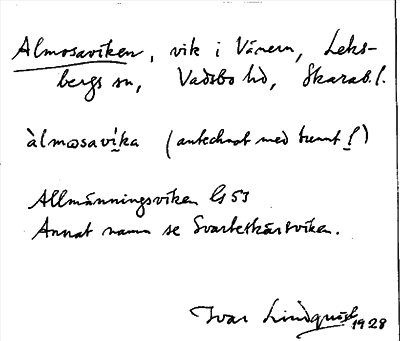 Almosaviken, vik i Vänern, Leks-
bergs sn, Vadsbo hd, Skarab. l.
àlmosavika (antecknat med tunnt l)
Allmänningsviken GS3
Annat namn se Svarteskärsviken.
Ivar Lindquist 1928